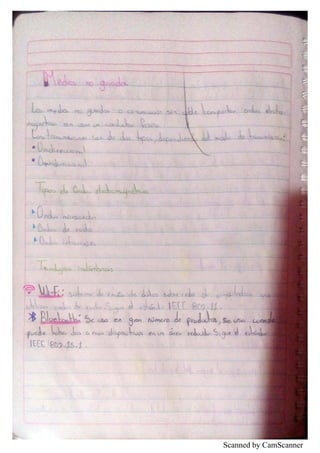 Medios no guiados
Los medios no guiados o comunicacion sin cable transportan ondas electro
magneticas sin usar un conductor fisico.
tipos dependiendo del modo de transmision:
• Direccional
• Omnidireccional
Tipos de Onda electromagnetica
Ondas microondas
Ondas de radio
Ondas infrarrojas
Tecnologias inalambricas
Wi-Fi: sistema de envio de datos sobre redes
IEEE 802.11.
Bluetooth: Se usa en gran número de productos, se usa cuando
puede haber dos o mas dispositivos en un área reducida Sigue el estándar
IEEE 802.15.1.
Scanned by CamScanner